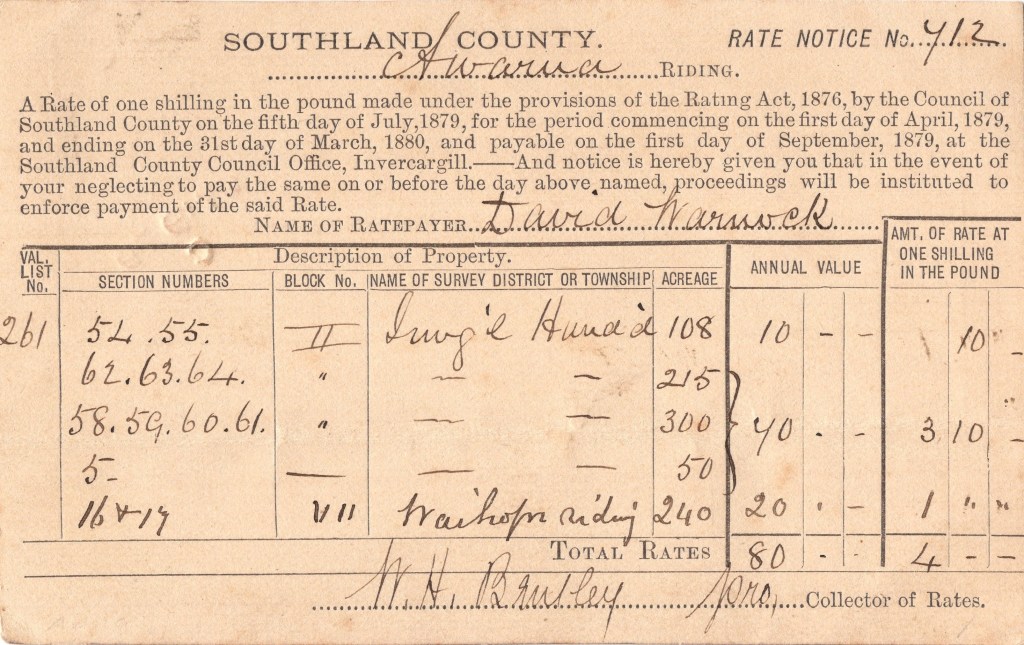 SOUTHLAND COUNTY. RATE NOTICE No. 712
Awarua RIDING.
A Rate of one shilling in the pound made under the provisions of the Rating Act, 1876, by the Council of
Southland County on the fifth day of July, 1879, for the period commencing on the first day of April, 1879,
and ending on the 31st day of March, 1880, and payable on the first day of September, 1879, at the
Southland County Council Office, Invercargill.——And notice is hereby given you that in the event of
your neglecting to pay the same on or before the day above named, proceedings will be instituted to
enforce payment of the said Rate.
NAME OF RATEPAYER David Warnock
VAL. LIST No. Description of Property. ANNUAL VALUE AMT. OF RATE AT ONE SHILLING IN THE POUND
SECTION NUMBERS BLOCK No. NAME OF SURVEY DISTRICT OR TOWNSHIP ACREAGE
261 54.55. II Invg'l Hund'd 108 10 - - 10 -
62.63.64. " — — 215
58.59.60.61. " — — 300 70 . - 3 10 -
5 — — — 50
16 & 17 VII Waihopai riding 240 20 ' - 1 " "
TOTAL RATES 80 - - 4 - -
W. H. Bensley pro, Collector of Rates.